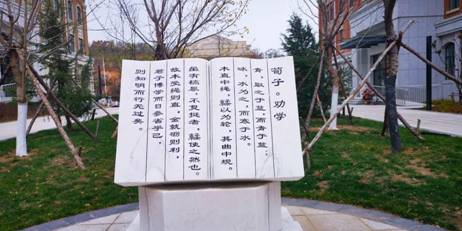 荀子·劝学
青,取之于蓝,而青于蓝
冰,水为之,而寒于水。
木直中绳,輮以为轮,其曲中规。
虽有槁暴,不复挺者,輮使之然也。
故木受绳则直,金就砺则利,
君子博学而日参省乎己,
则知明而行无过矣。